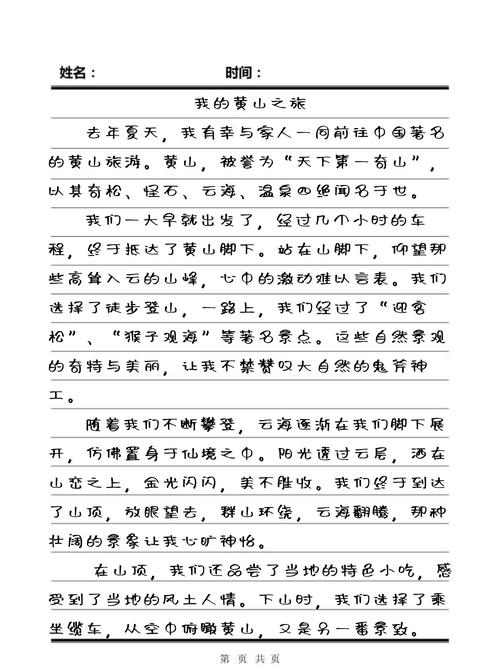 姓名： 时间：
我的黄山之旅
去年夏天，我有幸与家人一同前往中国著名
的黄山旅游。黄山，被誉为“天下第一奇山”，
以其奇松、怪石、云海、温泉四绝闻名于世。
我们一大早就出发了，经过几个小时的车
程，终于抵达了黄山脚下。站在山脚下，仰望那
些高耸入云的山峰，心中的激动难以言表。我们
选择了徒步登山，一路上，我们经过了“迎客
松”、“猴子观海”等著名景点。这些自然景观
的奇特与美丽，让我不禁赞叹大自然的鬼斧神
工。
随着我们不断攀登，云海逐渐在我们脚下展
开，仿佛置身于仙境之中。阳光透过云层，洒在
山峦之上，金光闪闪，美不胜收。我们终于到达
了山顶，放眼望去，群山环绕，云海翻腾，那种
壮阔的景象让我心旷神怡。
在山顶，我们还品尝了当地的特色小吃，感
受到了当地的风土人情。下山时，我们选择了乘
坐缆车，从空中俯瞰黄山，又是另一番景致。
第 页 共 页